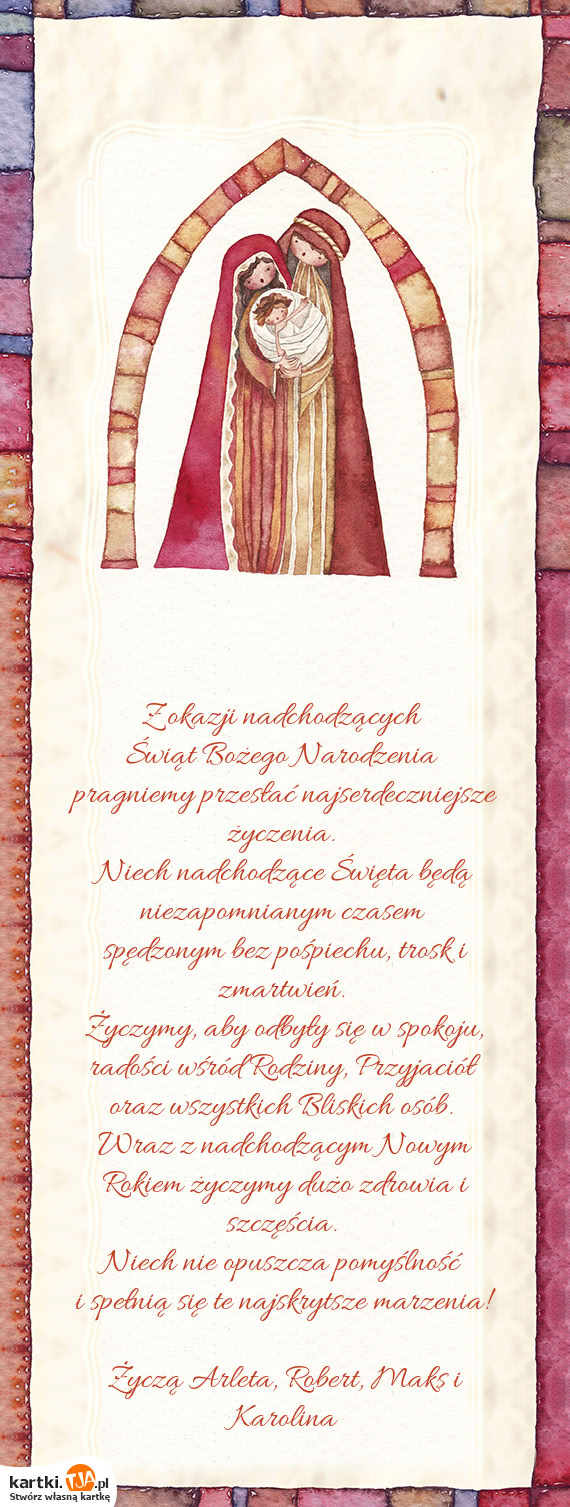 Z okazji nadchodzących
Świąt Bożego Narodzenia
pragniemy przesłać najserdeczniejsze
życzenia.
Niech nadchodzące Święta będą
niezapomnianym czasem
spędzonym bez pośpiechu, trosk i
zmartwień.
Życzymy, aby odbyły się w spokoju,
radości wśród Rodziny, Przyjaciół
oraz wszystkich Bliskich osób.
Wraz z nadchodzącym Nowym
Rokiem życzymy dużo zdrowia i
szczęścia.
Niech nie opuszcza pomyślność
i spełnią się te najskrytsze marzenia!
Życzą Arleta, Robert, Maks i
Karolina
kartki.TJA.pl
Stwórz własną kartkę